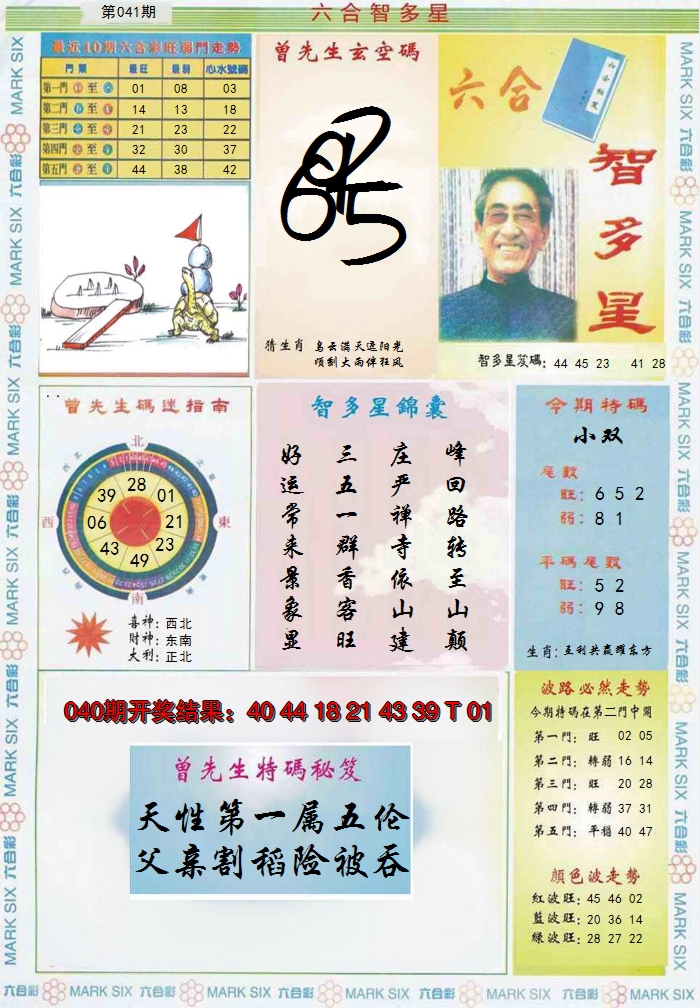 第041期
六合智多星
MARK SIX 六合彩
最近10期六合彩旺弱門走勢
門類 最旺 最弱 心水號碼
第一門 至 01 08 03
第二門 至 14 13 18
第三門 至 21 23 22
第四門 至 32 30 37
第五門 至 44 38 42
曾先生玄空碼
猜生肖 乌云满天遮阳光
顷刻大雨伴狂风
六合
智多星
智多星笈碼: 44 45 23 41 28
曾先生碼迷指南
北
西
東
南
28
01
21
23
49
43
06
39
喜神: 西北
財神: 东南
大利: 正北
智多星錦囊
峰回路转至山颠
庄严禅寺依山建
三五一群香客旺
好运常来景象显
今期特碼
小双
尾數
旺: 6 5 2
弱: 8 1
平碼尾數
旺: 5 2
弱: 9 8
生肖: 互利共赢耀东方
040期开奖结果: 40 44 18 21 43 39 T 01
曾先生特碼秘笈
天性第一属五伦
父亲割稻险被吞
波路必然走勢
今期特碼在第二門中開
第一門: 旺 02 05
第二門: 轉弱 16 14
第三門: 旺 20 28
第四門: 轉弱 37 31
第五門: 平穩 40 47
顏色波走勢
紅波旺: 45 46 02
藍波旺: 20 36 14
綠波旺: 28 27 22